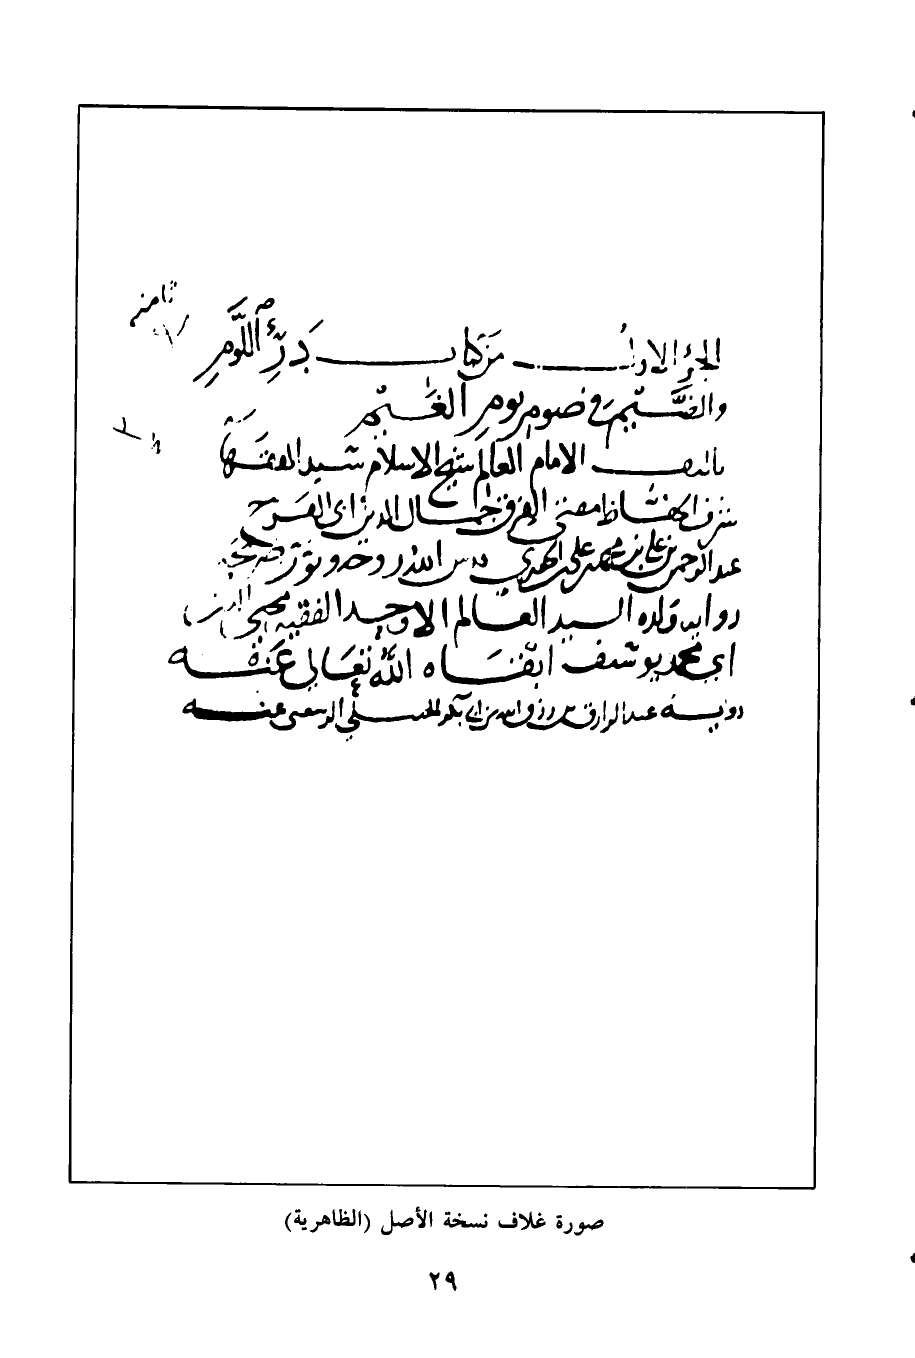 الجزء الاول من كتاب درء اللوم
والضيم في صوم يوم الغيم
تاليف الامام العالم شيخ الاسلام سيد الفقها
شرف الحفاظ مفتي الفرق جمال الدين ابي الفرج
عبد الرحمن بن علي بن محمد بن علي بن الجوزي قدس الله روحه ونور ضريحه
رواية ولده السيد العالم الاوحد الفقيه محيي الدين
ابي محمد يوسف ابقاه الله تعالى عنه
رواية عبد الرازق بن رزق الله بن ابي بكر الحنبلي الرسعني عنه
صورة غلاف نسخة الأصل (الظاهرية)
٢٩